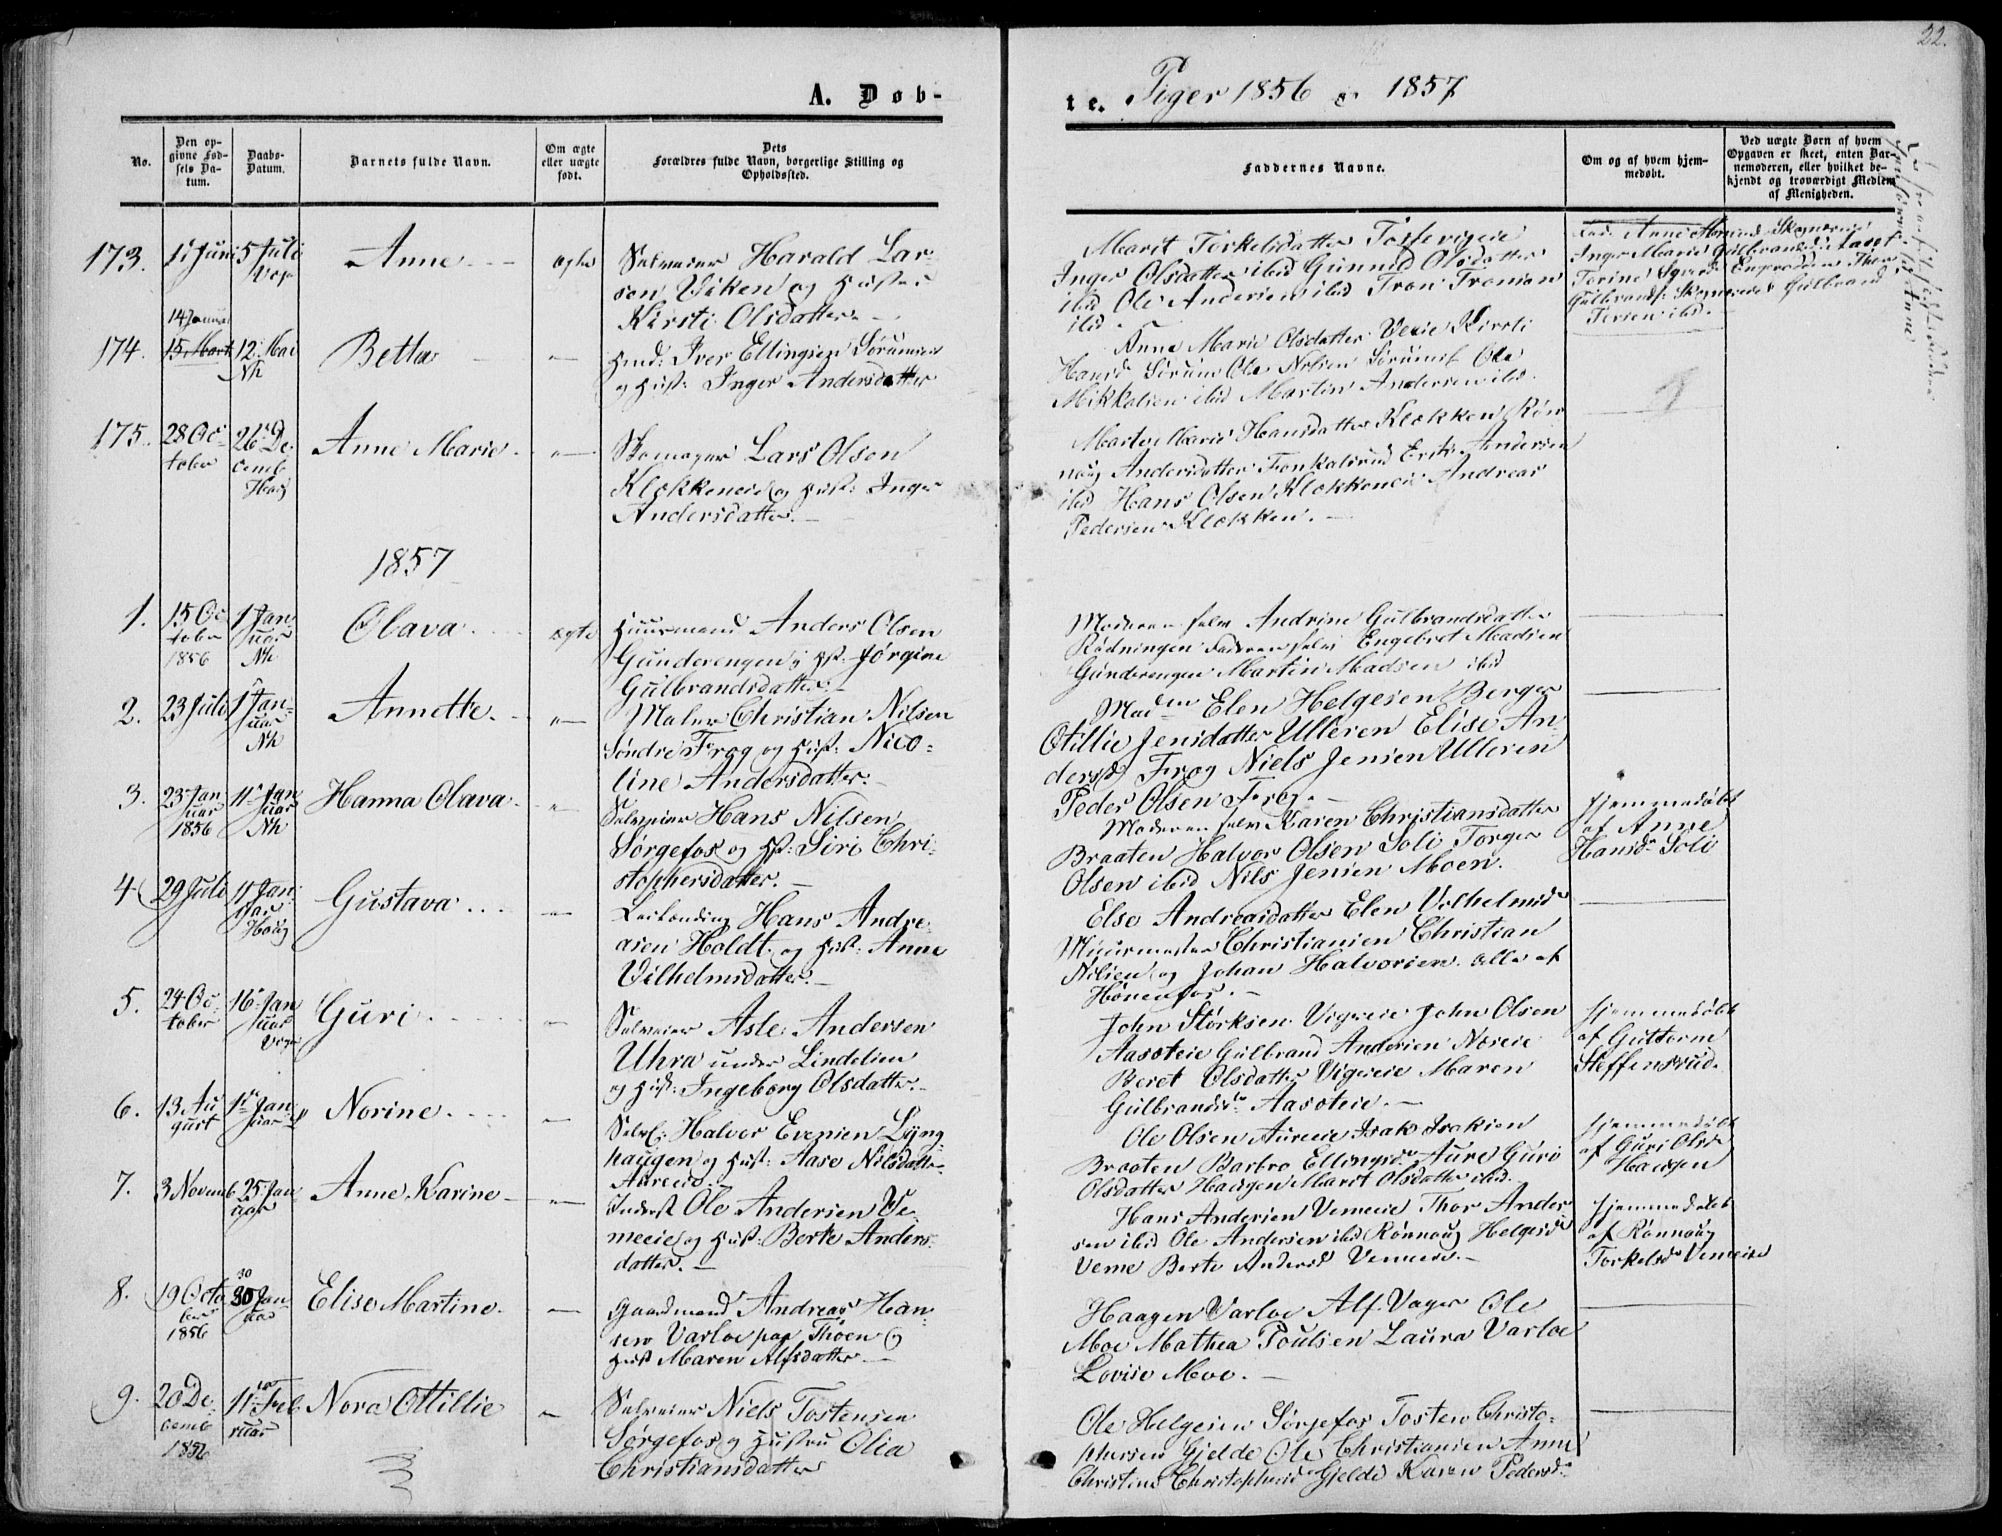 22.
A. Døb-
te. Piger 1856 & 1857
No.
Den op-
givne Fød-
sels Da-
tum.
Daabs-
Datum.
Barnets fulde Navn.
Om ægte
eller uægte
født.
Dets
Forældres fulde Navn, borgerlige Stilling og
Opholdssted.
Faddernes Navne.
Om og af hvem hjem-
medøbt.
Ved uægte Børn af hvem
Opgaven er skeet, enten Bar-
nemoderen, eller hvilket be-
kjendt og troværdigt Medlem
af Menigheden.
173.
1 Juni
5 Juli
Anne
ægte
Selveier Harald Lar-
sen Viken og Hustru
Kirsti Olsdatter
Marit Torkelsdatter
Inger Olsdatter ibid Gunild Olsdatter
ibid Ole Andersen ibid Tron Tronsen
ibid
174.
14 Januar
15 Marts
12 Mai
Nh
Betta
Huusm: Iver Ellingsen
og Hust: Inger Andersdatter
Anne Marie Olsdatter Kirsti
Hansd Sørum Ole Nilsen Sørum Ole
Mikkelsen ibid Martin Andersen ibid.
175.
28 Oc-
tober
26 De-
cemb
Haug
Anne Marie
Skomager Lars Olsen
Klækkeneie og Hust: Inger
Andersdatter.
Marte Marie Hansdatter Klækken Røn
naug Andersdatter Erik Andersen
ibid Hans Olsen Klækkeneie Andreas
Pedersen Klækken.
1857
1.
15 Oc
tober
1856
1 Jan-
uar
Nh
Olava
ægte
Huusmand Anders Olsen
Gunderengen og Hst. Jørgine
Gulbrandsdatter
Moderen selv Andrine Gulbrandsdatter
Rødningen Faderen selv Engebret Madsen
Gunderengen Martin Madsen ibid
2.
23 Juli
1 Jan-
uar
Nh
Annette
Maler Christian Nilsen
Søndre Frog og Hust: Nico-
line Andersdatter
Mad Elen Helgesen Berger
Otillie Jensdatter Ulleren Elise An-
dersd Frog Niels Jensen Ulleren
Peder Olsen Frog
3.
23 Jan
uar
1856
11 Jan
uar
Nh
Hanna Olava
Selveier Hans Nilsen
Sørgefos og Hst: Siri Chri-
stophersdatter.
Moderen selv Karen Christiansdatter
Braaten Halvor Olsen Soli Torger
Olsen ibid Nils Jensen Moen.
Hjemmedøbt
af Anne
Hansd Soli
4
29 Juli
11 Jan-
uar
Haug
Gustava
Leilænding Hans Andre-
asen Holdt og Hust: Anne
Vilhelmsdatter.
Else Andreasdatter Elen Vilhelmsd
Muurmester Christiansen Christian
Nilsen og Johan Halvorsen alle af
Hønenfos.
5.
24 Oc
tober
16 Jan
uar
Guri
Selveier Asle Andersen
Uhra under Lindelien
og Hust: Ingeborg Olsdatter
John Størksen Vigreie John Olsen
Aasoteie Gulbrand Andersen Noreie
Beret Olsdatter Vigreie Maren
Gulbrandsd Aasoteie
Hjemmedøbt
af Guttorm
Steffensrud.
6.
13 Au
gust
1 Jan-
uar
Norine
Halvor Evensen Lyng
haugen og Hust: Aase Nilsdatter
Aureeie
Ole Olsen Aureeie Isak Isaksen
Braaten Barbro Ellingsd Aure Guri
Olsdatter Haugen Marit Olsdatter ibid.
Hjemmedøbt
af Guri Olsd
Haugen
7.
3 Novemb
25 Jan
uar
Anne Karine
Inderst Ole Andersen Ve-
meeie og Hust: Berte Anders-
datter.
Hans Andersen Vemeeie Thor Ander
sen ibid Ole Andersen ibid Rønnaug Helgesd
Veme Berte Andersd Vemeeie
Hjemmedøbt
af Rønnaug
Torkelsd Vemeeie
8.
19 Octo
ber
1856
30
30 Jan-
uar
Elise Martine
Gaardmand Andreas Han-
sen Varloe paa Thoen og
Hust Maren Alfsdatter
Haagen Varloe Alf Vager Ole
Moe Mathea Poulsen Laura Varloe
Lovise Moe.
9.
20 De-
cemb
1856
11 Feb
ruar
Nora Ottillie
Selveier Niels Tostensen
Sørgefos og Hustru Olia
Christiansdatter
Ole Helgesen Sørgefos Tosten Christo-
phersen Gjelde Ole Christiansen Anne
Christine Christophersd Gjelde Karen Pedersd